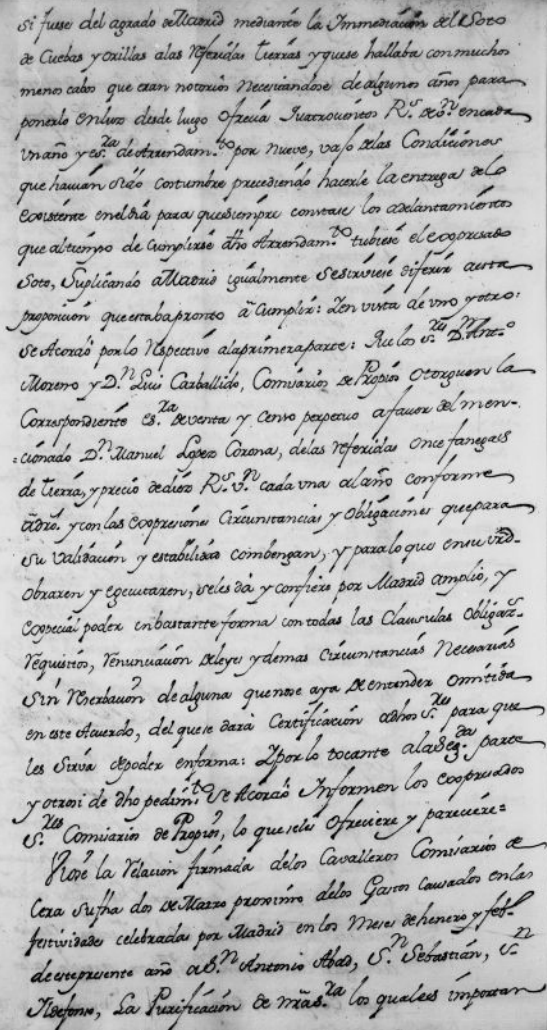 si fuese del agrado de Madrid mediante la Immediacion del Soto
de Cuebas y orillas a las referidas tierras y que se hallaba con muchos
menos cabos que eran notorios Necesitandose de algunos años para
ponerlo en luzo desde luego ofrecia quatrocientos R.s de v.n en cada
un año y es.ra de Arrendam.to por nueve, vajo de las Condiciones
que havian sido costumbre precediendo hacerle la entrega de lo
existente en el dia para que siempre constase los adelantamientos
que al tiempo de Cumplirse dho Arrendam.to tubiese el expresado
Soto, Suplicando a Madrid igualmente se sirviese diferir a esta
proposicion que estaba pronto a Cumplir: Y en vista de uno y otro:
Se Acordó por lo Respectivo a la primera parte: Que los S.res D.n Ant.o
Moreno y D.n Luis Carballido, Comisarios de Propios otorguen la
Correspondiente es.ra de venta y censo perpetuo a favor del men-
=cionado D.n Manuel Lopez Corona, de las referidas once fanegas
de tierra, y precio de diez R.s v.n cada una al año conforme
a dro. y con las expresiones Circunstancias y obligaciones que para
su validacion y estabilidad combengan, y para lo que en su vrd
obraren y egecutaren, se les dá y confiere por Madrid amplio, y
especial poder en bastante forma con todas las Clausulas obligaz.s
requisitos, renunciacion de leyes y demas Circunstancias Necesarias
Sin Reserbacion de alguna que no se aya de entender omitida
en este Acuerdo, del que se dará Certificacion a dhos S.res para que
les Sirva de poder en forma: Y por lo tocante a la Seg.da parte
y otrosi de dho pedim.to Se Acordó Informen los expresados
S.res Comisarios de Propios, lo que se les ofreciere y pareciere=
Viose la Relacion firmada de los Cavalleros Comisarios de
Cera su fha dos de Marzo proximo de los Gastos causados en las
festividades celebradas por Madrid en los Meses de henero y feb.o
de este presente año a S.n Antonio Abad, S.n Sebastian, S.n
Ildefonso, La Purificacion de nra S.ra los quales importan